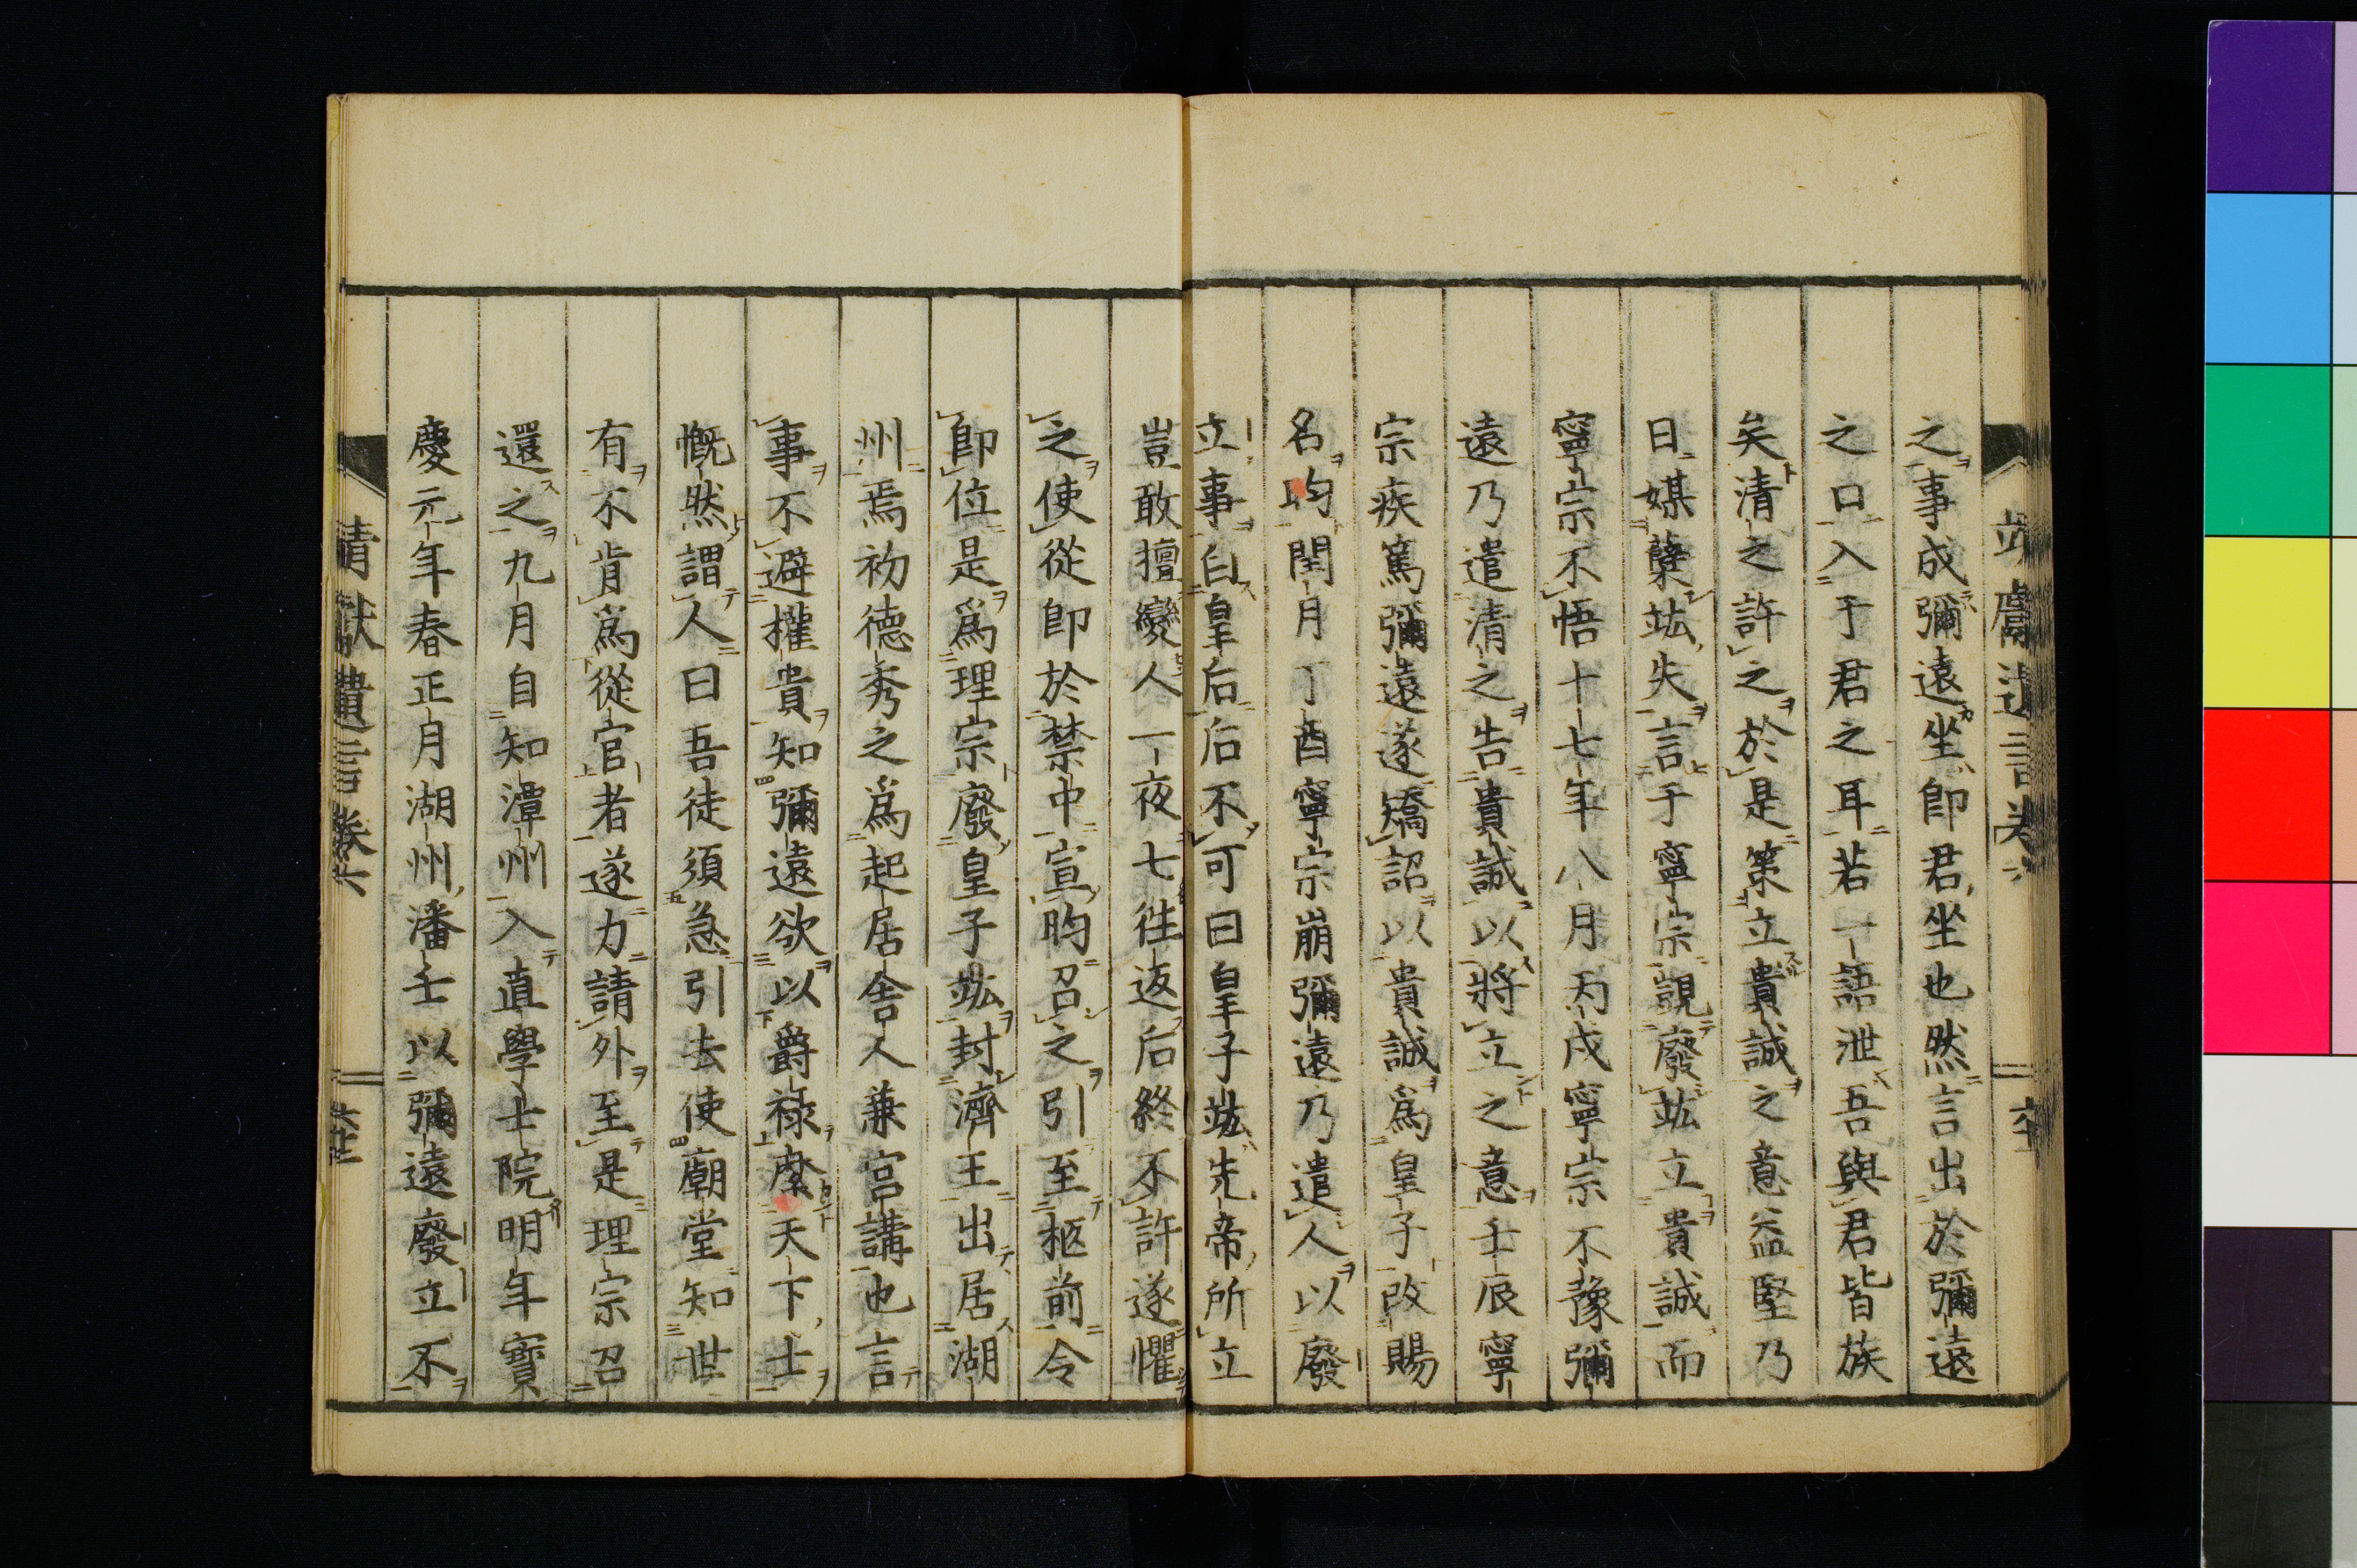 之事成彌遠坐卽君坐也然言出於彌遠
之口入于君之耳若一語泄吾與君皆族
矣清之許之於是策立貴誠之意益堅乃
日媒蘖竑失言于寧宗覬廢竑立貴誠而
寧宗不悟十七年八月丙戌寧宗不豫彌
遠乃遣清之告貴誠以將立之意壬辰寧
宗疾篤彌遠遂矯詔以貴誠爲皇子改賜
名昀閏月丁酉寧宗崩彌遠乃遣人以廢
立事白皇后后不可曰皇子竑先帝所立
豈敢擅變人一夜七往返后終不許遂懼
之使從卽於禁中宣昀召之引至柩前令
卽位是爲理宗廢皇子竑封濟王出居湖
州焉初德秀之爲起居舍人兼宮講也言
事不避權貴知彌遠欲以爵祿縻天下士
慨然謂人曰吾徒須急引去使廟堂知世
有不肯爲從官者遂力請外至是理宗召
還之九月自知潭州入直學士院明年寶
慶元年春正月湖州潘壬以彌遠廢立不
靖獻遺言卷六